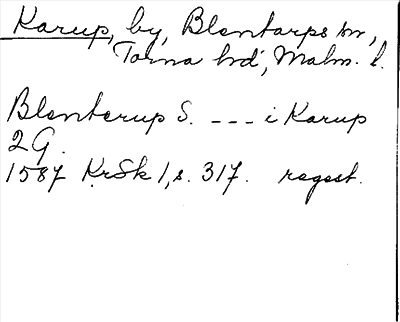 Karup, by, Blentarps sn,
Torna hd, Malm. l.
Blentarup S. --- i Karup
2 G.
1587 KrSk 1, s. 317. regest.